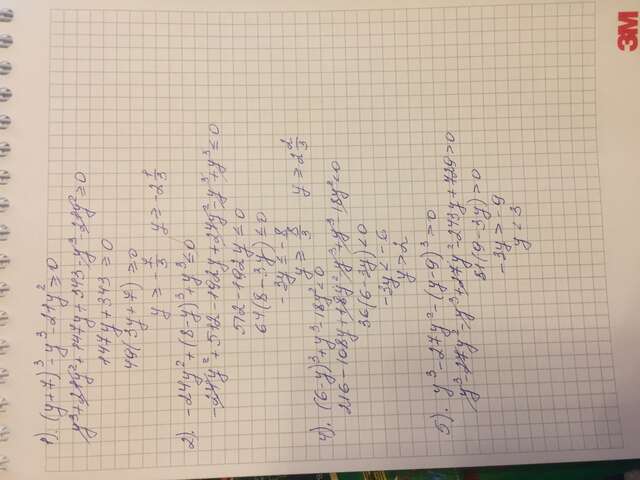 1). (y+7)³-y³-21y²≥0
y³+21y²+147y+343-y³-21y²≥0
147y+343≥0
49(3y+7)≥0
y≥-7/3 y≥-2 1/3
2). -24y²+(8-y)³+y³≤0
-24y²+512-192y+24y²-y³+y³≤0
512-192y≤0
64(8-3y)≤0
-3y≤-8
y≥8/3 y≥2 2/3
4). (6-y)³+y³-18y²<0
216-108y+18y²-y³+y³-18y²<0
36(6-3y)<0
-3y<-6
y>2
5). y³-27y²-(y-9)³>0
y³-27y²-y³+27y²-243y+729>0
81(9-3y)>0
-3y>-9
y<3
3M